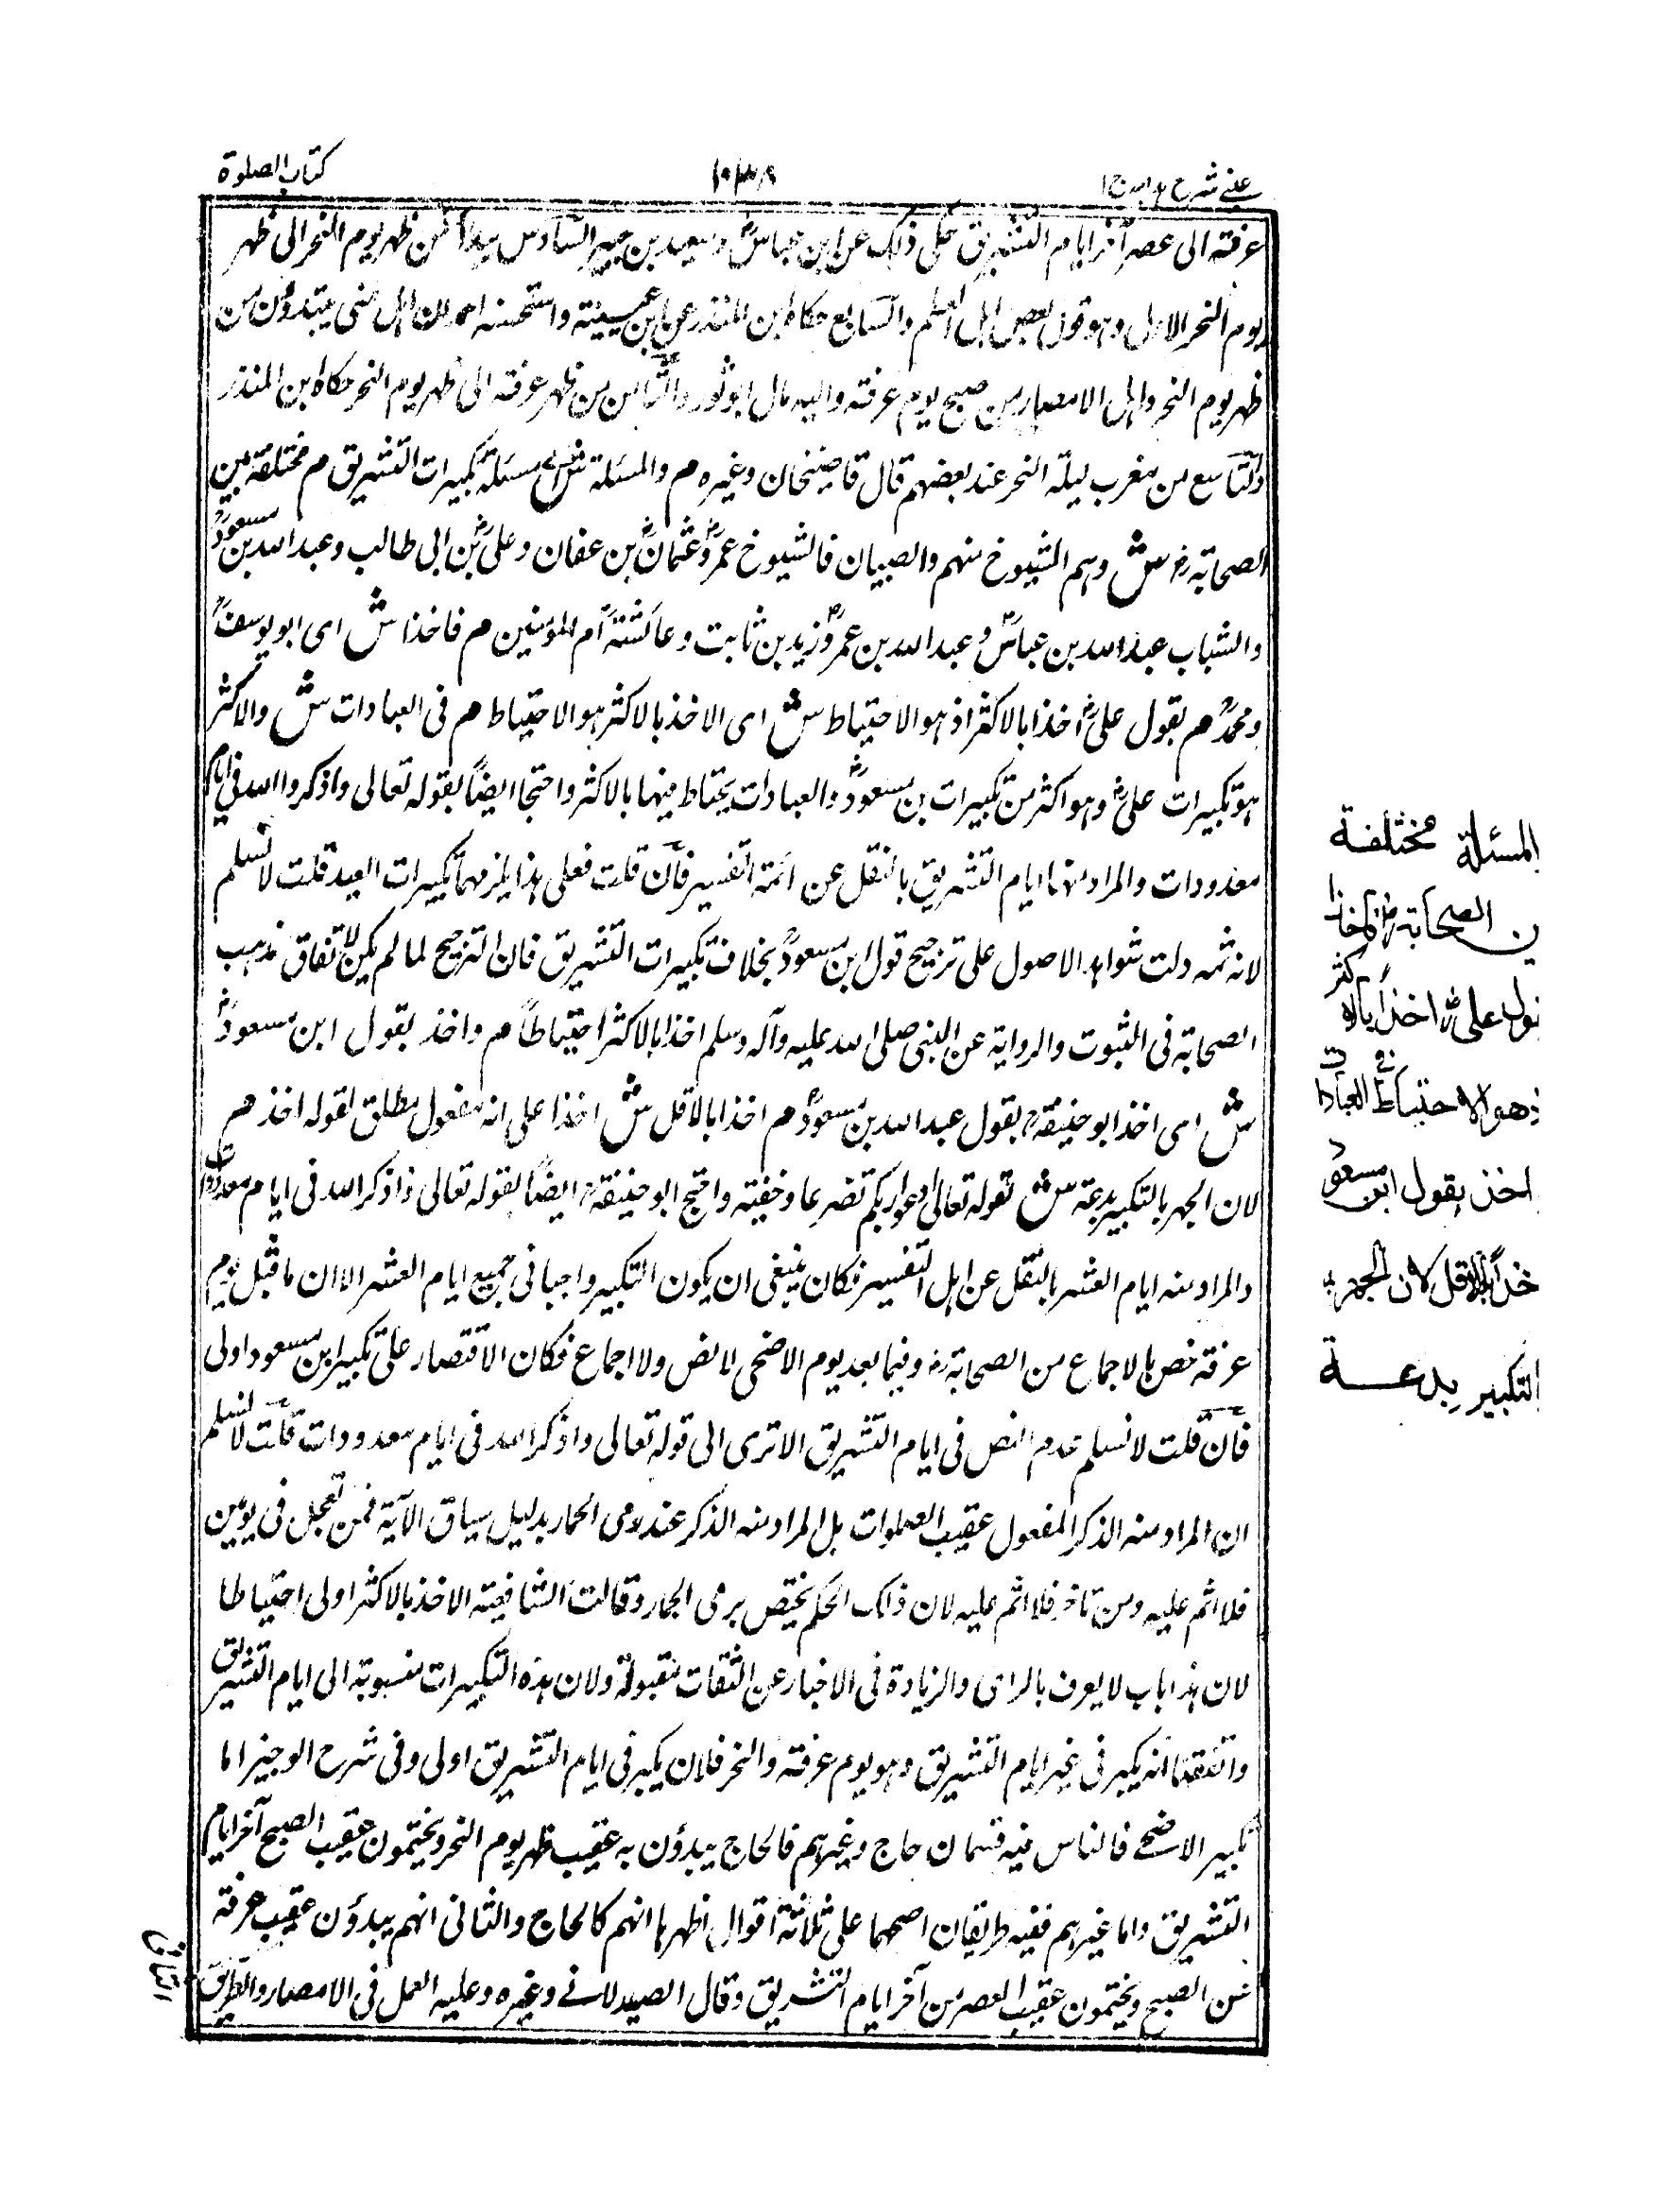 عينى شرح هدايه ج ا
١٠٣٨
كتاب الصلوة
عرفة الى عصر آخر ايام التشريق حكى ذلك عن ابن عباسؓ وسعيد بن جبير السادس يبدأ من ظهر يوم النحر الى ظهر
يوم النحر الاول وهو قول بعض اهل العلم والسابع حكاه ابن المنذر عن ابن عيينة واستحسنه احمد ان اهل منى يبتدؤن من
ظهر يوم النحر واهل الامصار من صبح يوم عرفة واليه مال ابو ثور والثامن من ظهر عرفة الى ظهر يوم النحر حكاه ابن المنذر
والتاسع من مغرب ليلة النحر عند بعضهم قال قاضيخان وغيره م والمسئلة ش اى مسئلة تكبيرات التشريق م مختلفة بين
الصحابة رض ش وهم الشيوخ منهم والصبيان فالشيوخ عمرؓ وعثمانؓ بن عفان وعلىؓ بن ابى طالب وعبد الله بن مسعودؓ
والشباب عبد الله بن عباسؓ وعبد الله بن عمرؓ وزيد بن ثابت وعائشة ام المؤمنين م فاخذا ش اى ابو يوسفؒ
ومحمدؒ م بقول علىؓ اخذا بالاكثر اذ هو الاحتياط ش اى الاخذ بالاكثر هو الاحتياط م فى العبادات ش والاكثر
هو تكبيرات علىؓ وهو اكثر من تكبيرات بن مسعودؓ والعبادات يحتاط فيها بالاكثر واحتجا ايضاً بقوله تعالى واذكروا الله فى ايام
معدودات والمراد منها ايام التشريق بالنقل عن ائمة التفسير فان قلت فعلى هذا يلزمهما تكبيرات العيد قلت لا نسلم
لانه ثمه دلت شواهد الاصول على ترجيح قول ابن مسعودؓ بخلاف تكبيرات التشريق فان الترجيح لما لم يكن لاتفاق مذهب
الصحابة فى الثبوت والرواية عن النبى صلى الله عليه وآله وسلم اخذا بالاكثر احتياطاً م واخذ بقول ابن مسعودؓ
ش اى اخذ ابو حنيفةؒ بقول عبد الله بن مسعودؓ م اخذا بالاقل ش اخذا على انه مفعول مطلق لقوله اخذ م
لان الجهر بالتكبير بدعة ش لقوله تعالى ادعوا ربكم تضرعا وخفية واحتج ابو حنيفةؒ ايضاً بقوله تعالى واذكر الله فى ايام معدودات
والمراد منه ايام العشر بالنقل عن اهل التفسير فكان ينبغى ان يكون التكبير واجبا فى جميع ايام العشر الا ان ما قبل يوم
عرفة خص بالاجماع من الصحابة رض وفيما بعد يوم الاضحى لا نص ولا اجماع فكان الاقتصار على تكبير ابن مسعود اولى
فان قلت لا نسلم عدم النص فى ايام التشريق الا ترى الى قوله تعالى واذكر الله فى ايام معدودات قلت لا نسلم
ان المراد منه الذكر المفعول عقيب الصلوات بل المراد منه الذكر عند رمى الجمار بدليل سياق الآية فمن تعجل فى يومين
فلا اثم عليه ومن تاخر فلا اثم عليه لان ذلك الحكم يختص برمى الجمار وقالت الشافعية الاخذ بالاكثر اولى احتياطا
لان هذا باب لا يعرف بالراى والزيادة فى الاخبار عن الثقات مقبولة ولان هذه التكبيرات منسوبة الى ايام التشريق
واتفقنا انه يكبر فى غير ايام التشريق وهو يوم عرفة والنحر فلان يكبر فى ايام التشريق اولى وفى شرح الوجيز اما
تكبير الاضحى فالناس فيه قسمان حاج وغيرهم فالحاج يبدؤن به عقيب ظهر يوم النحر ويختمون عقيب الصبح آخر ايام
التشريق واما غيرهم ففيه طريقان اصحهما على ثلاثة اقوال اظهرها انهم كالحاج والثانى انهم يبدؤن عقيب عرفة
من الصبح ويختمون عقيب العصر من آخر ايام التشريق وقال الصيدلانى وغيره وعليه العمل فى الامصار والطريق
الثانى
المسئلة مختلفة
ين الصحابة رض فاخذا
قول علىؓ اخذاً بالاكثر
ذ هو الاحتياط فى العبادات
اخذ بقول ابن مسعود
خذاً بالاقل لان الجهر ب
التكبير بدعة